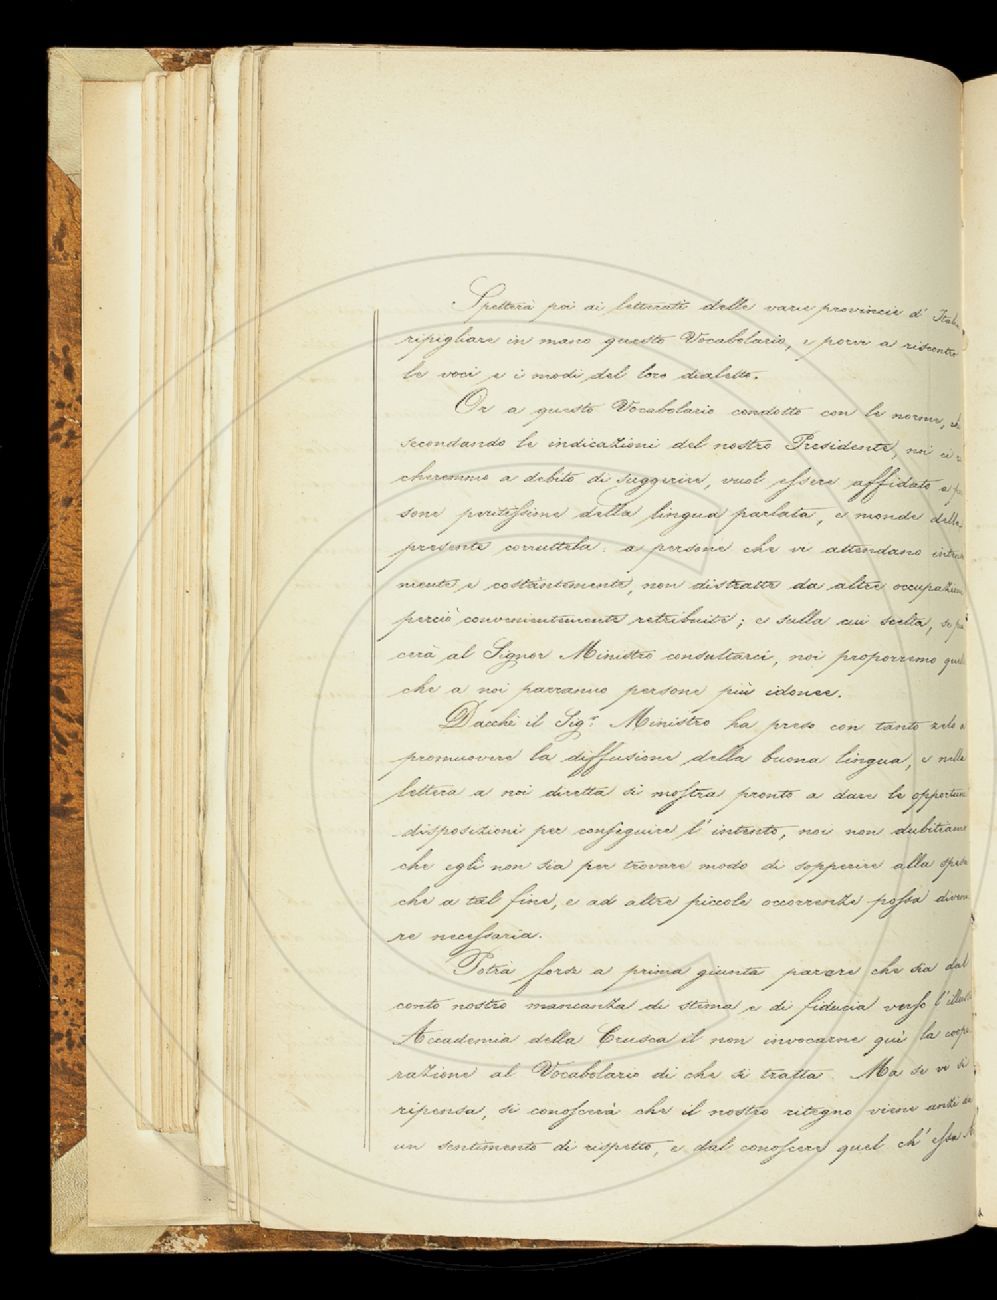 Spetterà poi ai letterati delle varie provincie d'
ripigliare in mano questo Vocabolario, e porre a riscontro
le voci e i modi del loro dialetto.
Or a questo Vocabolario condotto con le norme,
secondando le indicazioni del nostro Presidente, noi ci
cheremmo a debito di suggerire, vuol essere affidato a
sone peritissime della lingua parlata, e monde della
presente corruttela: a persone che vi attendano
mente e costantemente, non distratte da altre
perciò convenientemente retribuite; e sulla cui scelta, se
cerà al Signor Ministro consultarci, noi proporremo
che a noi parranno persone più idonee.
Dacchè il Sigr. Ministro ha preso con tanto zelo a
promuovere la diffusione della buona lingua, e nella
lettera a noi diretta si mostra pronto a dare le
disposizioni per conseguire l'intento, noi non dubitiamo
che egli non sia per trovare modo di sopperire alla spesa
che a tal fine, e ad altre piccole occorrenze possa
re necessaria.
Potrà forse a prima giunta parere che sia dal
canto nostro mancanza di stima e di fiducia verso
Accademia della Crusca il non invocarne quì la
razione al Vocabolario di che si tratta. Ma se vi si
ripensa, si conoscerà che il nostro ritegno viene anzi da
un sentimento di rispetto, e dal conoscere quel ch'essa